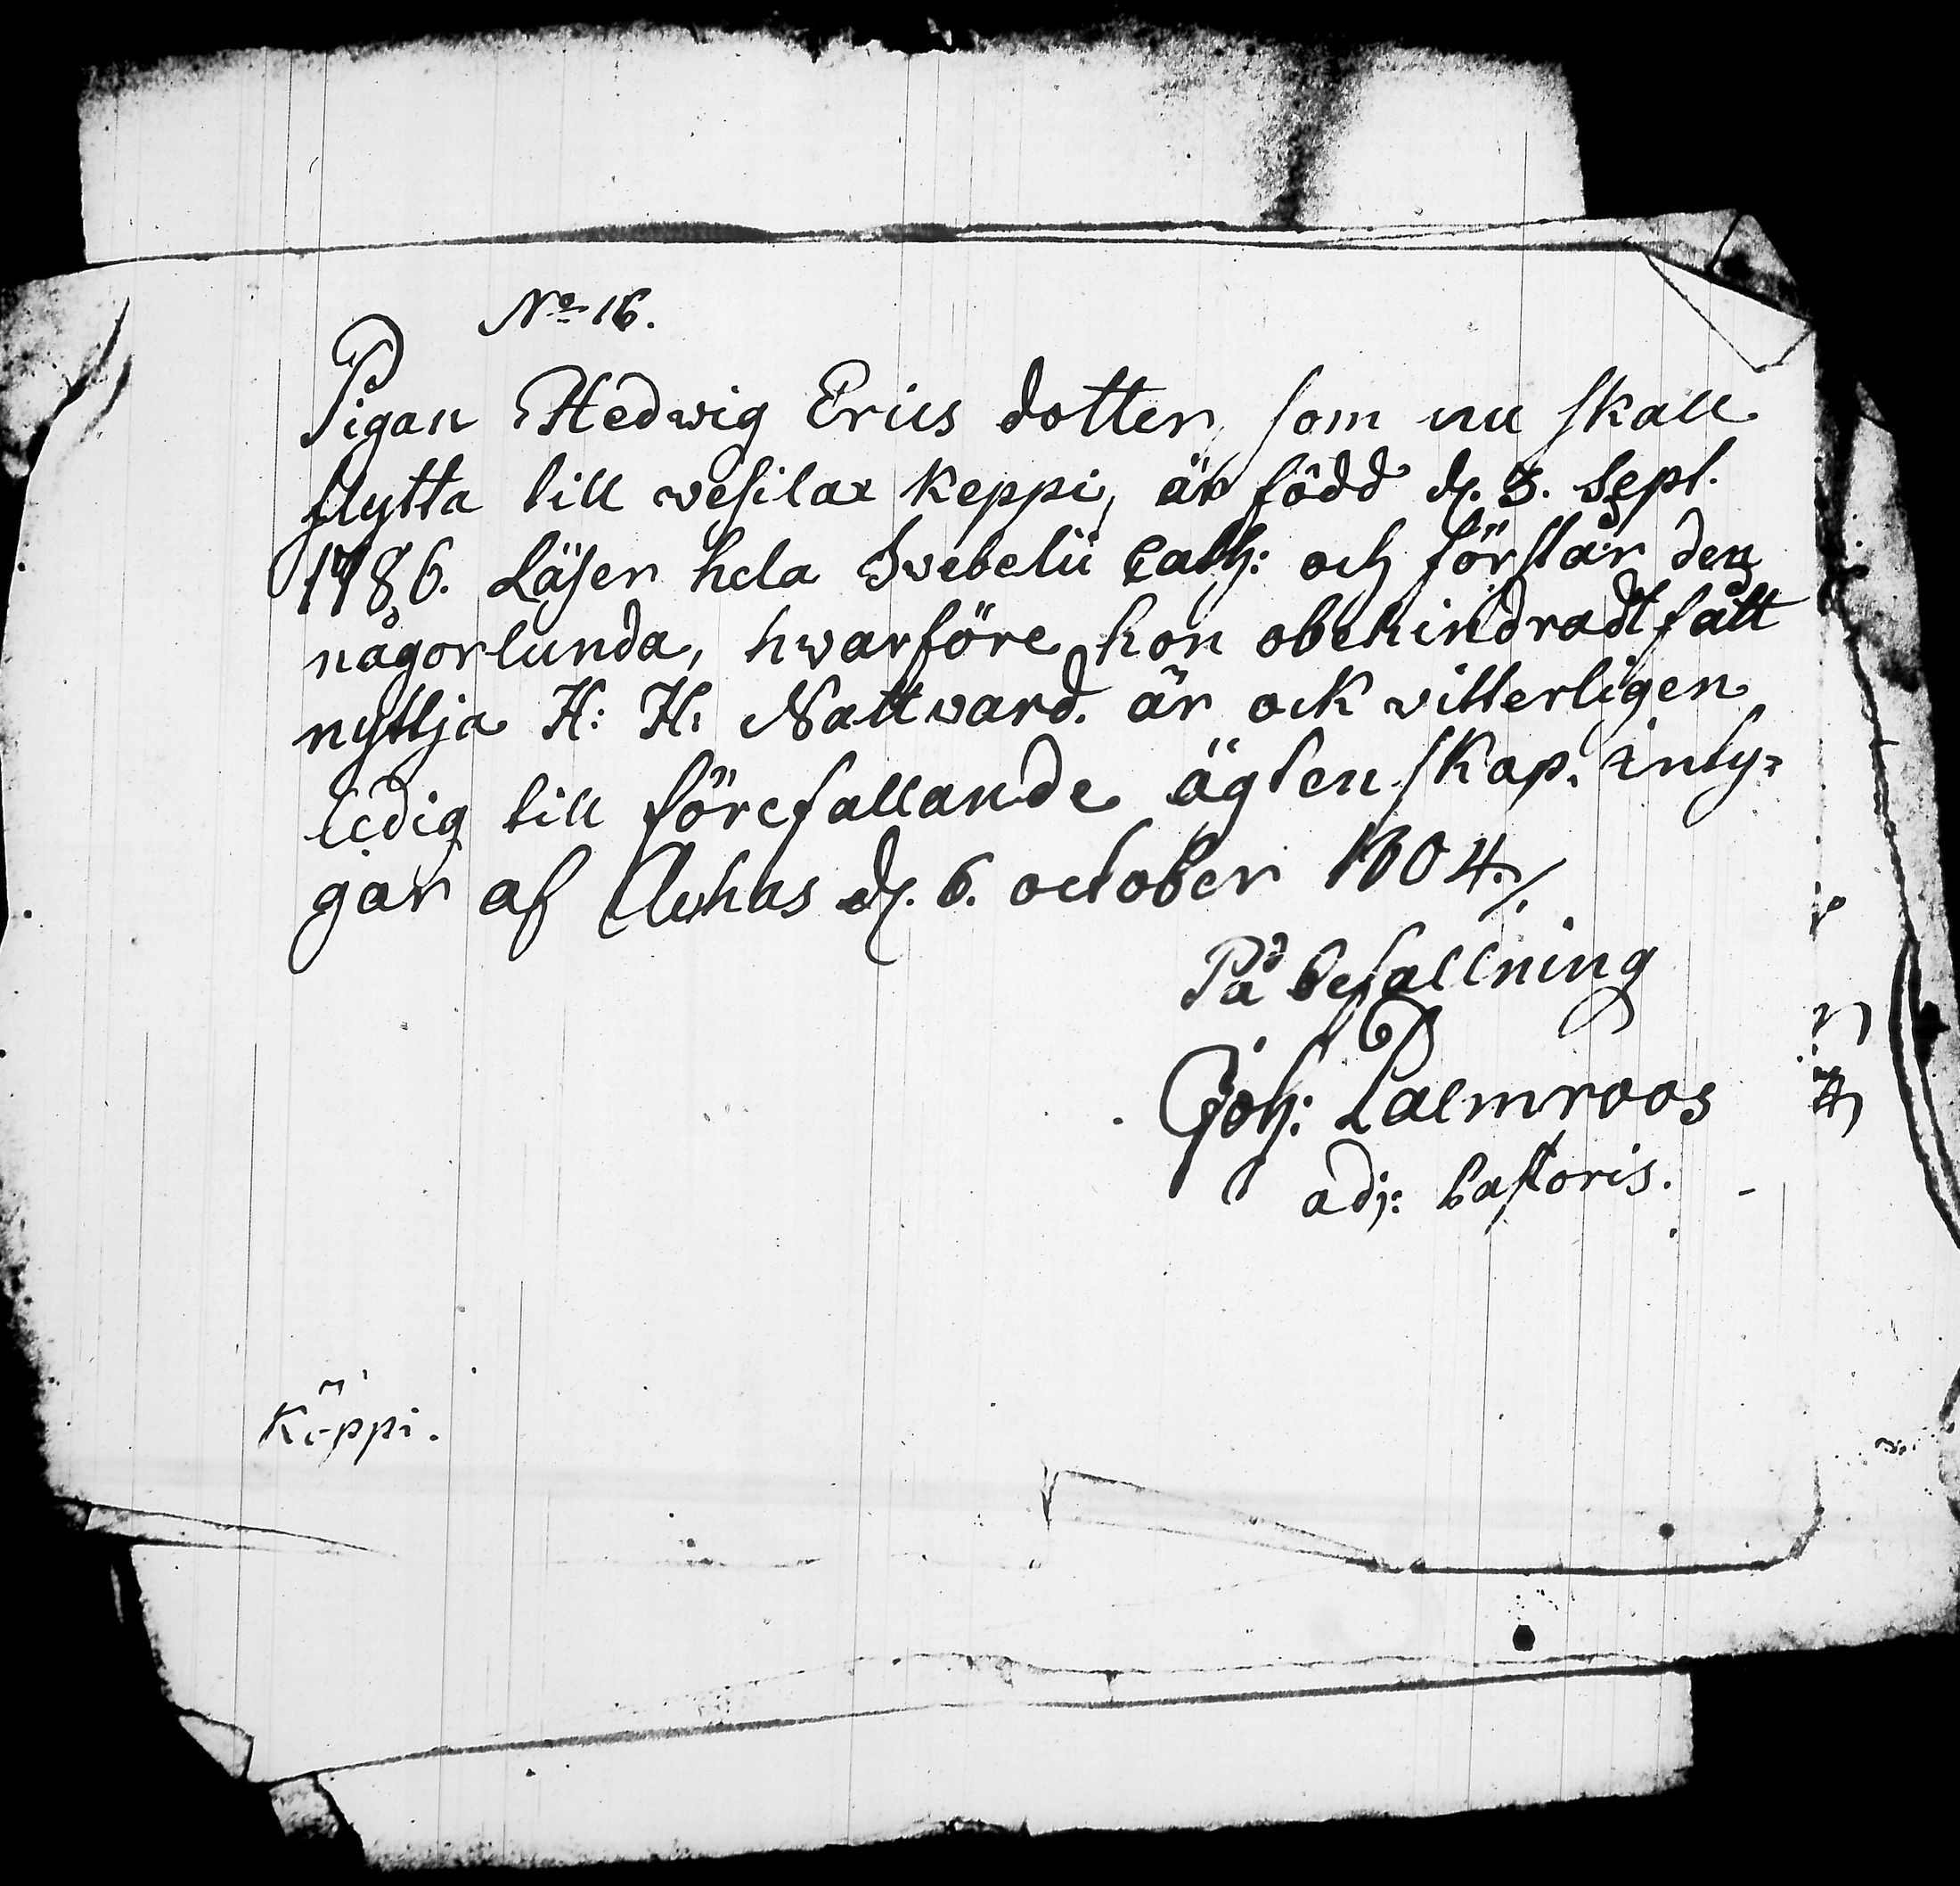 No 16.
Pigan Hedwig Erics dotter, som nu skall
flytta till wesilax Keppi, är född d. 3. Sept.
1786. Läser hela Swebelii Cath: och förstår den
någorlunda, hwarföre hon obehindradt fått
nyttja H: H: Nattward. är ock witterligen
ledig till förefallande ägtenskap. inty=
gar af Achas d. 6. october 1804./.
På befallning
Joh: Palmroos
adj: Pastoris.
Keppi.